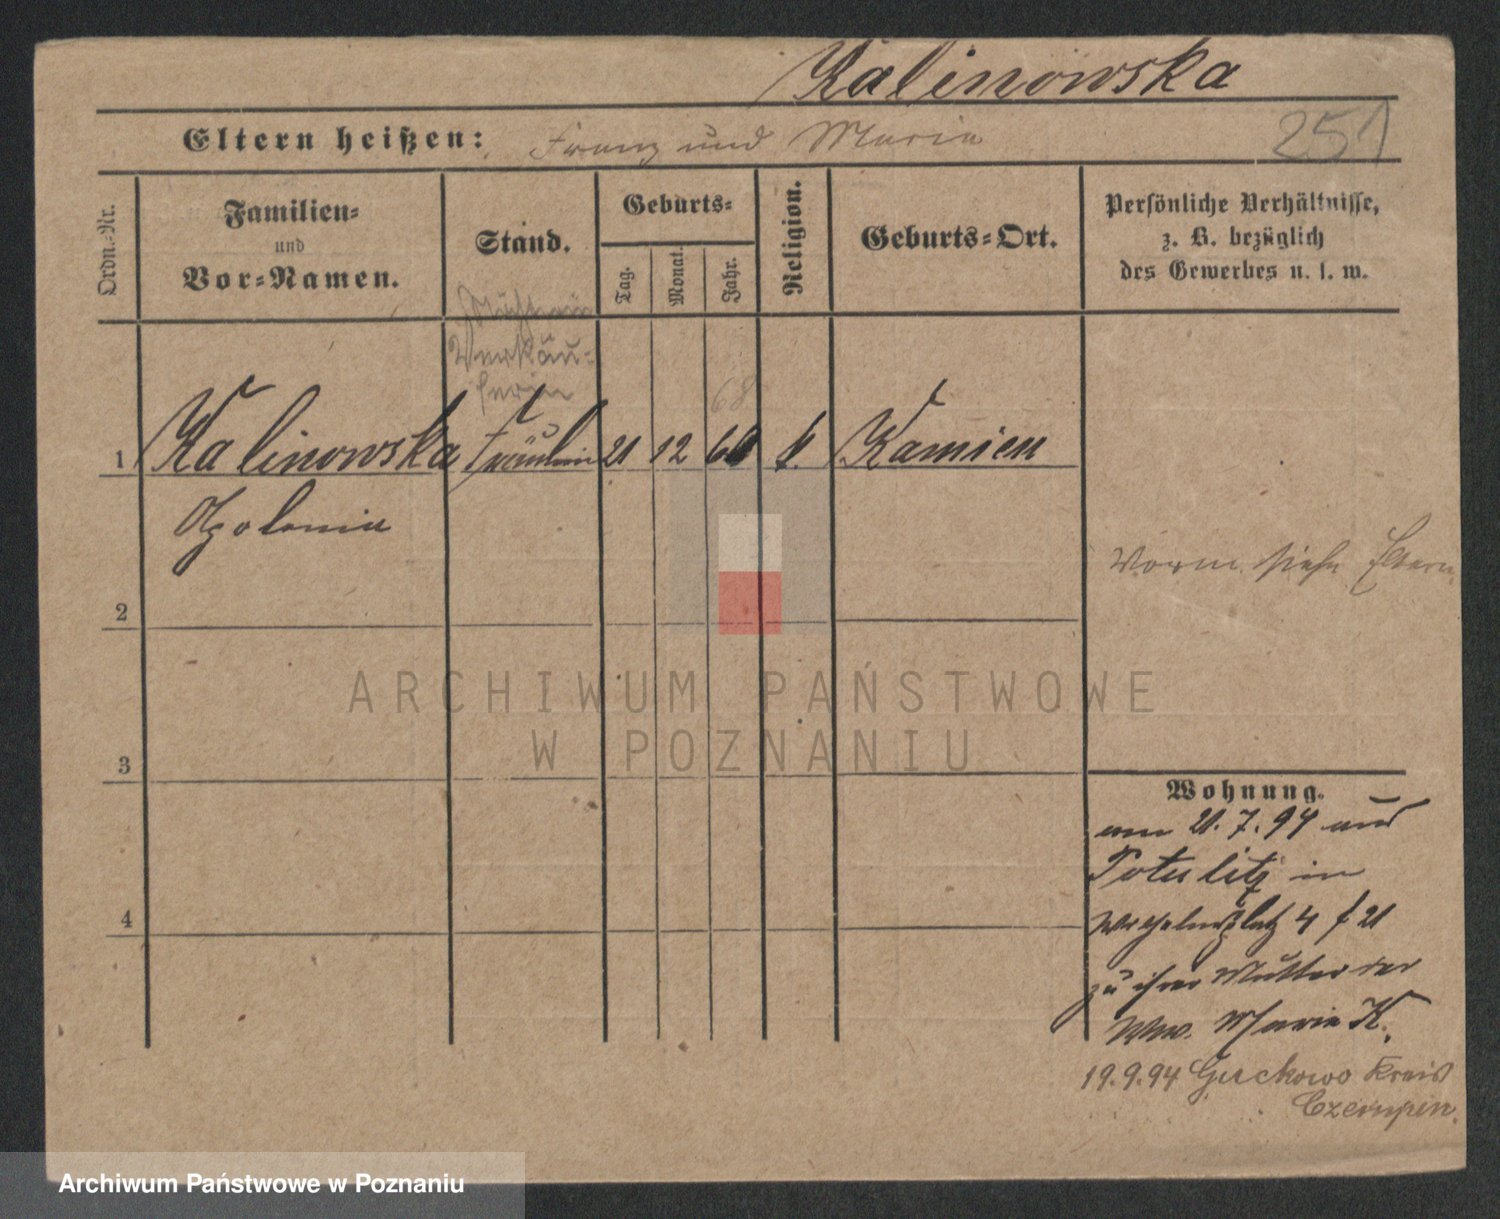 Kalinowska
Eltern heißen: Franz und Maria 251
Ordn.-Nr.
Familien-
und
Vor-Namen.
Stand.
Geburts-
Tag. Monat. Jahr.
Religion.
Geburts-Ort.
Persönliche Verhältnisse,
z. B. bezüglich
des Gewerbes u. s. w.
Verkäu-
ferin
68
1 Kalinowska Fräulein 21 12 k. Kamien
Apolonia
Vorm. siehe Eltern.
2
ARCHIWUM PAŃSTWOWE
W POZNANIU
3
Wohnung.
am 21.7.94 aus
Potulitz in
Wilhelmsplatz 4 f 21
zu ihrer Mutter der
Ww. Maria K.
4
19.9.94 Kreis
Czempin.
Archiwum Państwowe w Poznaniu